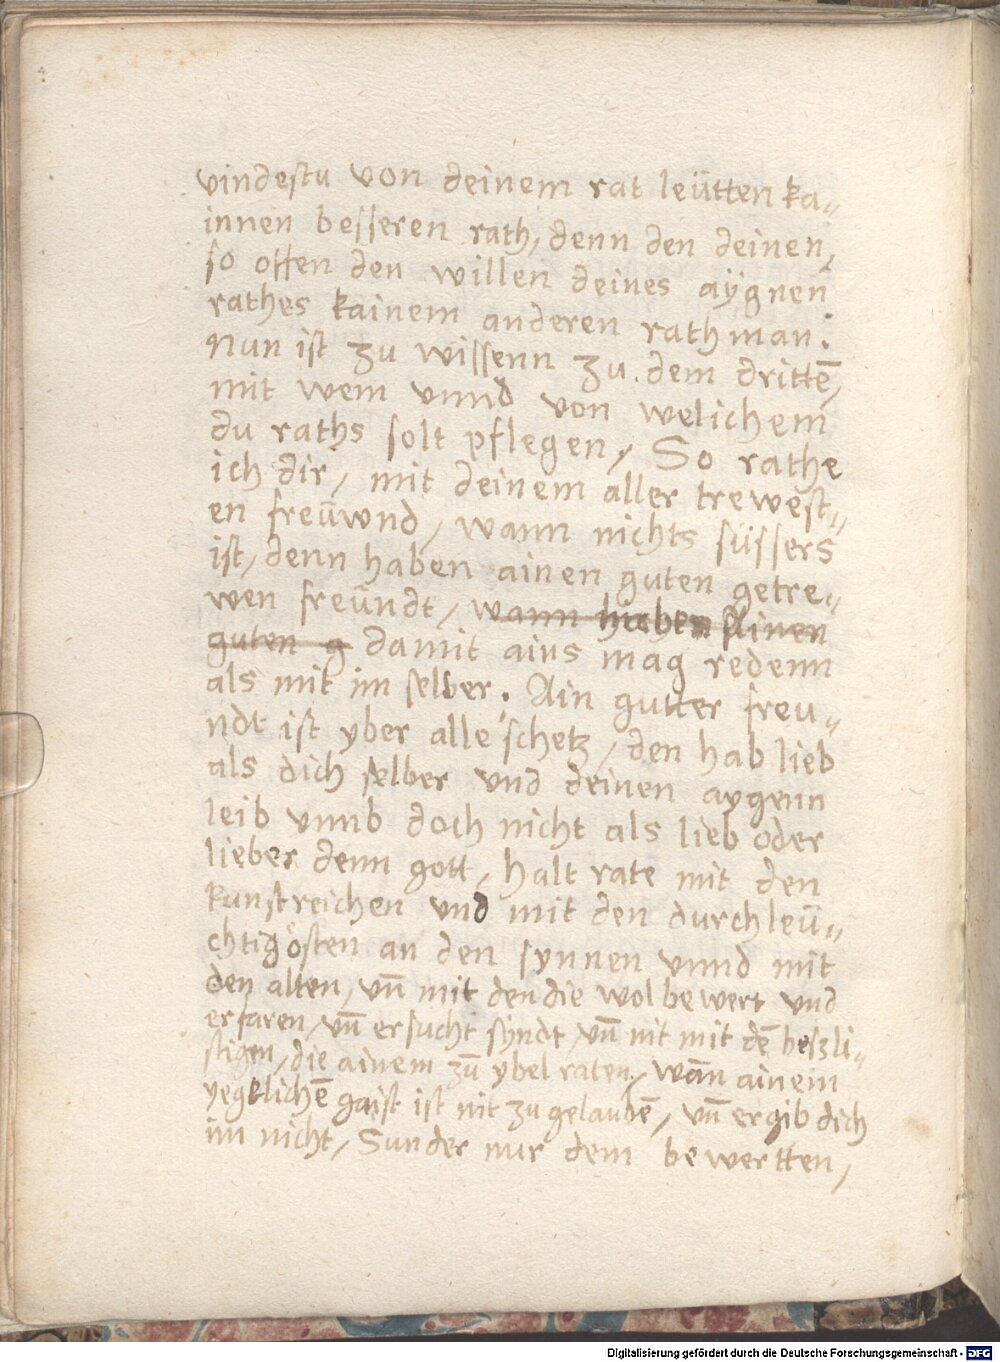 vindestu von deinem rat leütten ka„
innen besseren rath, denn den deinen,
so offen den willen deines aÿgnen̄
rathes kainem anderen rathman.
Nun ist zu wissenn zu dem drittē,
mit wem vnnd von welichem
du raths solt pflegen, So rathe
ich dir, mit deinem aller trewest„
en freüwnd, wann nichts süssers
ist, denn haben ainen guten getre„
wen freündt, wann haben Ainen
guten g damit ains mag redenn
als mit im selber. Ain gutter freu„
ndt ist yber alle schetz, den hab lieb
als dich selber vnd deinen aygenn
leib vnnb doch nicht als lieb oder
lieber denn gott, halt rate mit den
kunstreichen vnd mit den durchleü„
chtigösten an den synnen vnnd mit
den alten, vn̄ mit den die wol bewert vnd
erfaren, vn̄ ersucht syndt, vn̄ nit mit dē beszli„
stigen, die ainem zu ybel raten, wān ainem
yegklichē gaist ist nit zu gelaubē, vn̄ ergib dich
im nicht, Sunder nur dem bewertten,
Digitalisierung gefördert durch die Deutsche Forschungsgemeinschaft - DFG